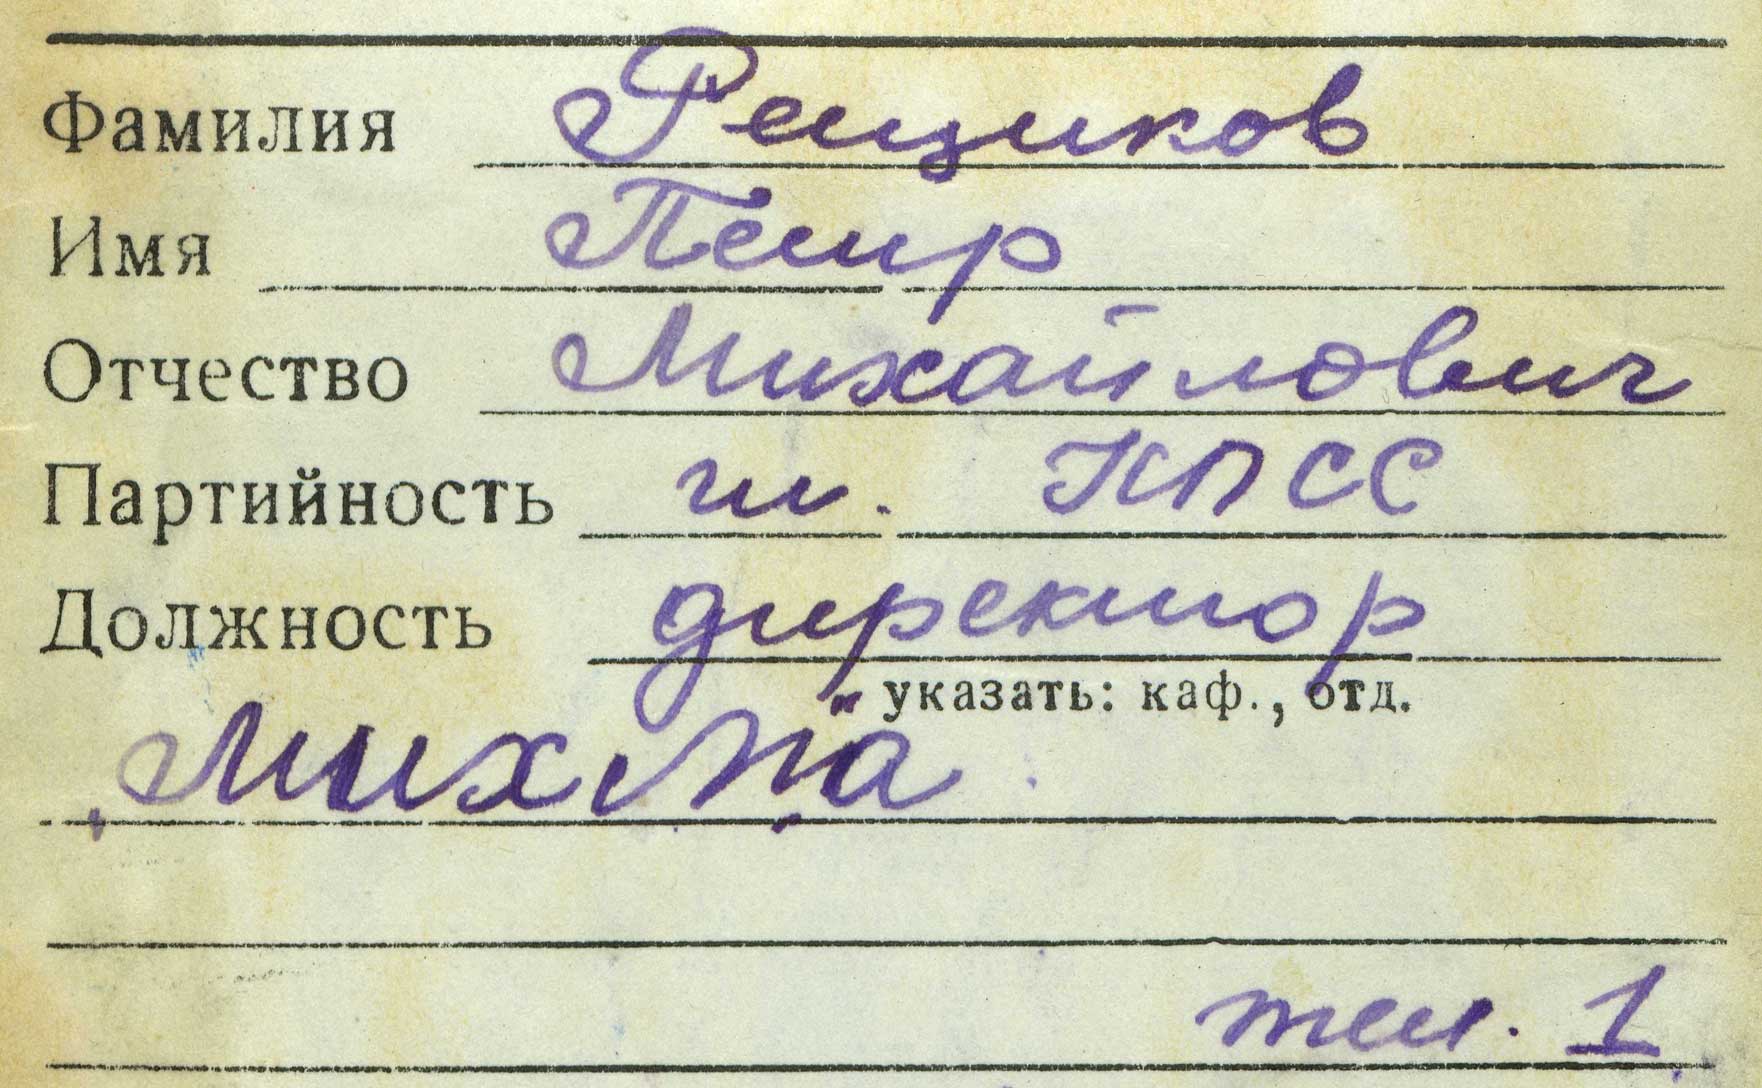 Фамилия Рещиков
Имя Петр
Отчество Михайлович
Партийность чл. КПСС
Должность директор
указать: каф., отд.
„МИХМ"а
тел. 1